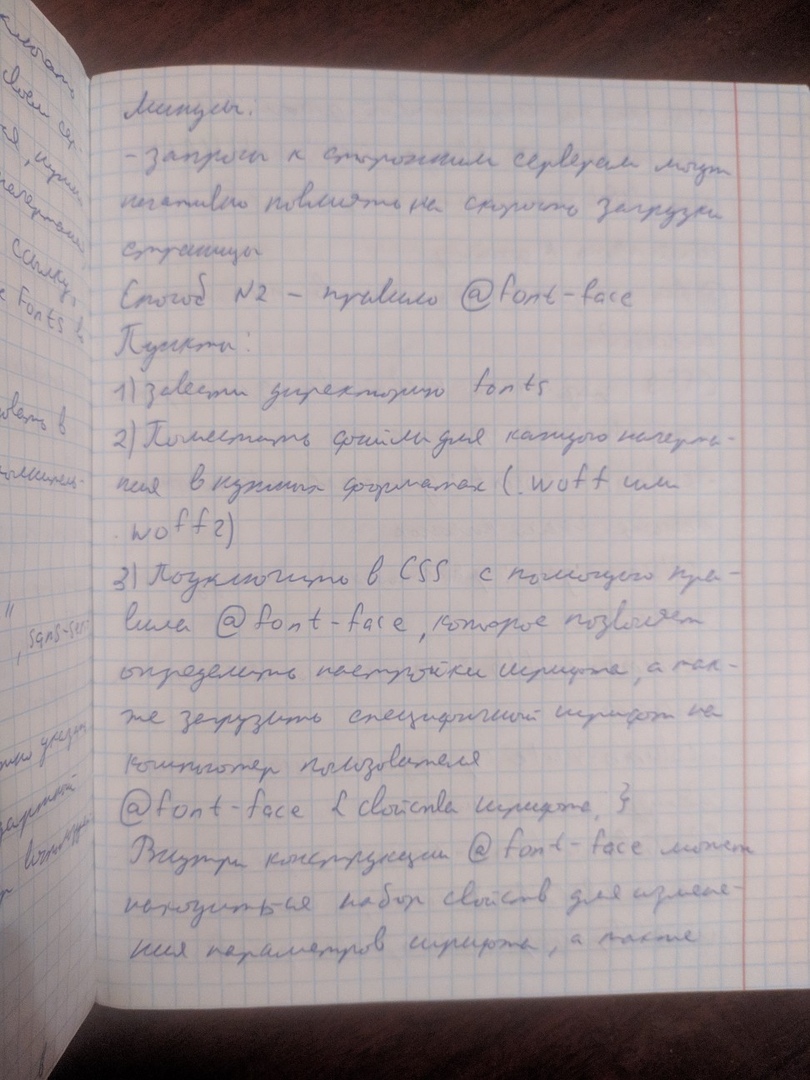 Минусы:
- Запросы к сторонним серверам могут
негативно повлиять на скорость загрузки
страницы
Способ N2 - правило @font-face
Пункты:
1) Завести директорию fonts
2) Поместить файлы для каждого начерта-
ния в нужных форматах (.woff или
.woff2)
3) Подключить в CSS с помощью пра-
вила @font-face, которое позволяет
определить настройки шрифта, а так-
же загрузить специфичный шрифт на
компьютер пользователя
@font-face { свойства шрифта }
Внутри конструкции @font-face может
находиться набор свойств для измене-
ния параметров шрифта, а также
ссылку,
fonts в
в
", sans-ser-